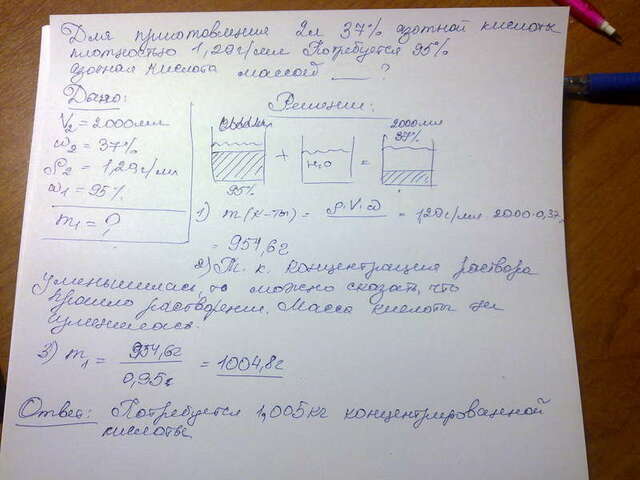 Для приготовления 2л 37% азотной кислоты
плотностью 1,29г/мл Потребуется 95%
азотная кислота массой ___ ?
Дано:
V2 = 2000мл
ω2 = 37%
ρ2 = 1,29г/мл
ω1 = 95%
m1 = ?
Решение:
95%
+
H2O
=
2000мл
37%
1) m(к-ты) = ρ·V·ω = 1,29г/мл 2000·0,37
= 954,6г
2) Т.к. концентрация раствора
уменьшилась, то можно сказать, что
прошло растворение. Масса кислоты не
изменилась.
3) m1 = 954,6г / 0,95 = 1004,8г
Ответ: Потребуется 1,005кг концентрированной
кислоты